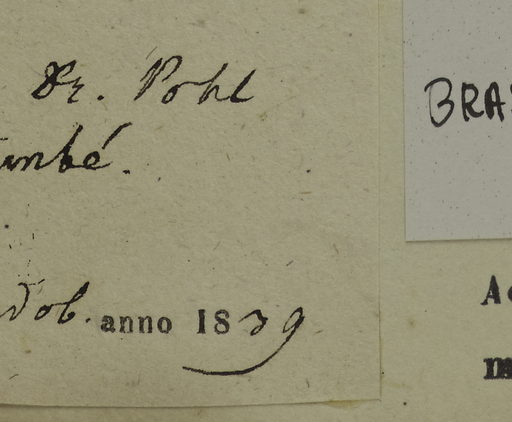 Dr. Pohl
umbé.
dob. anno 1839
BRA
A
m